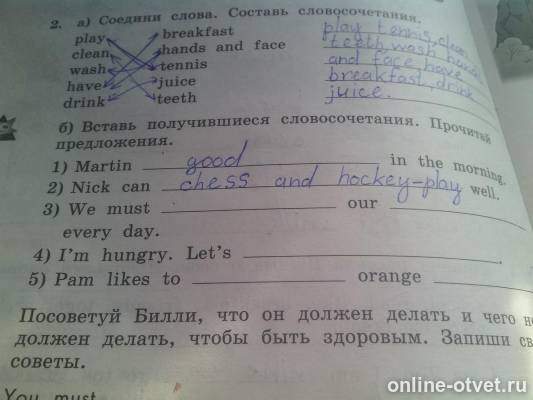 2. а) Соедини слова. Составь словосочетания.
play breakfast
clean hands and face
wash tennis
have juice
drink teeth
play tennis, clean
teeth, wash hands
and face, have
breakfast, drink
juice.
б) Вставь получившиеся словосочетания. Прочитай
предложения.
1) Martin good in the morning.
2) Nick can chess and hockey-play well.
3) We must our
every day.
4) I'm hungry. Let's .
5) Pam likes to orange
Посоветуй Билли, что он должен делать и чего не
должен делать, чтобы быть здоровым. Запиши
советы.
You must
online-otvet.ru